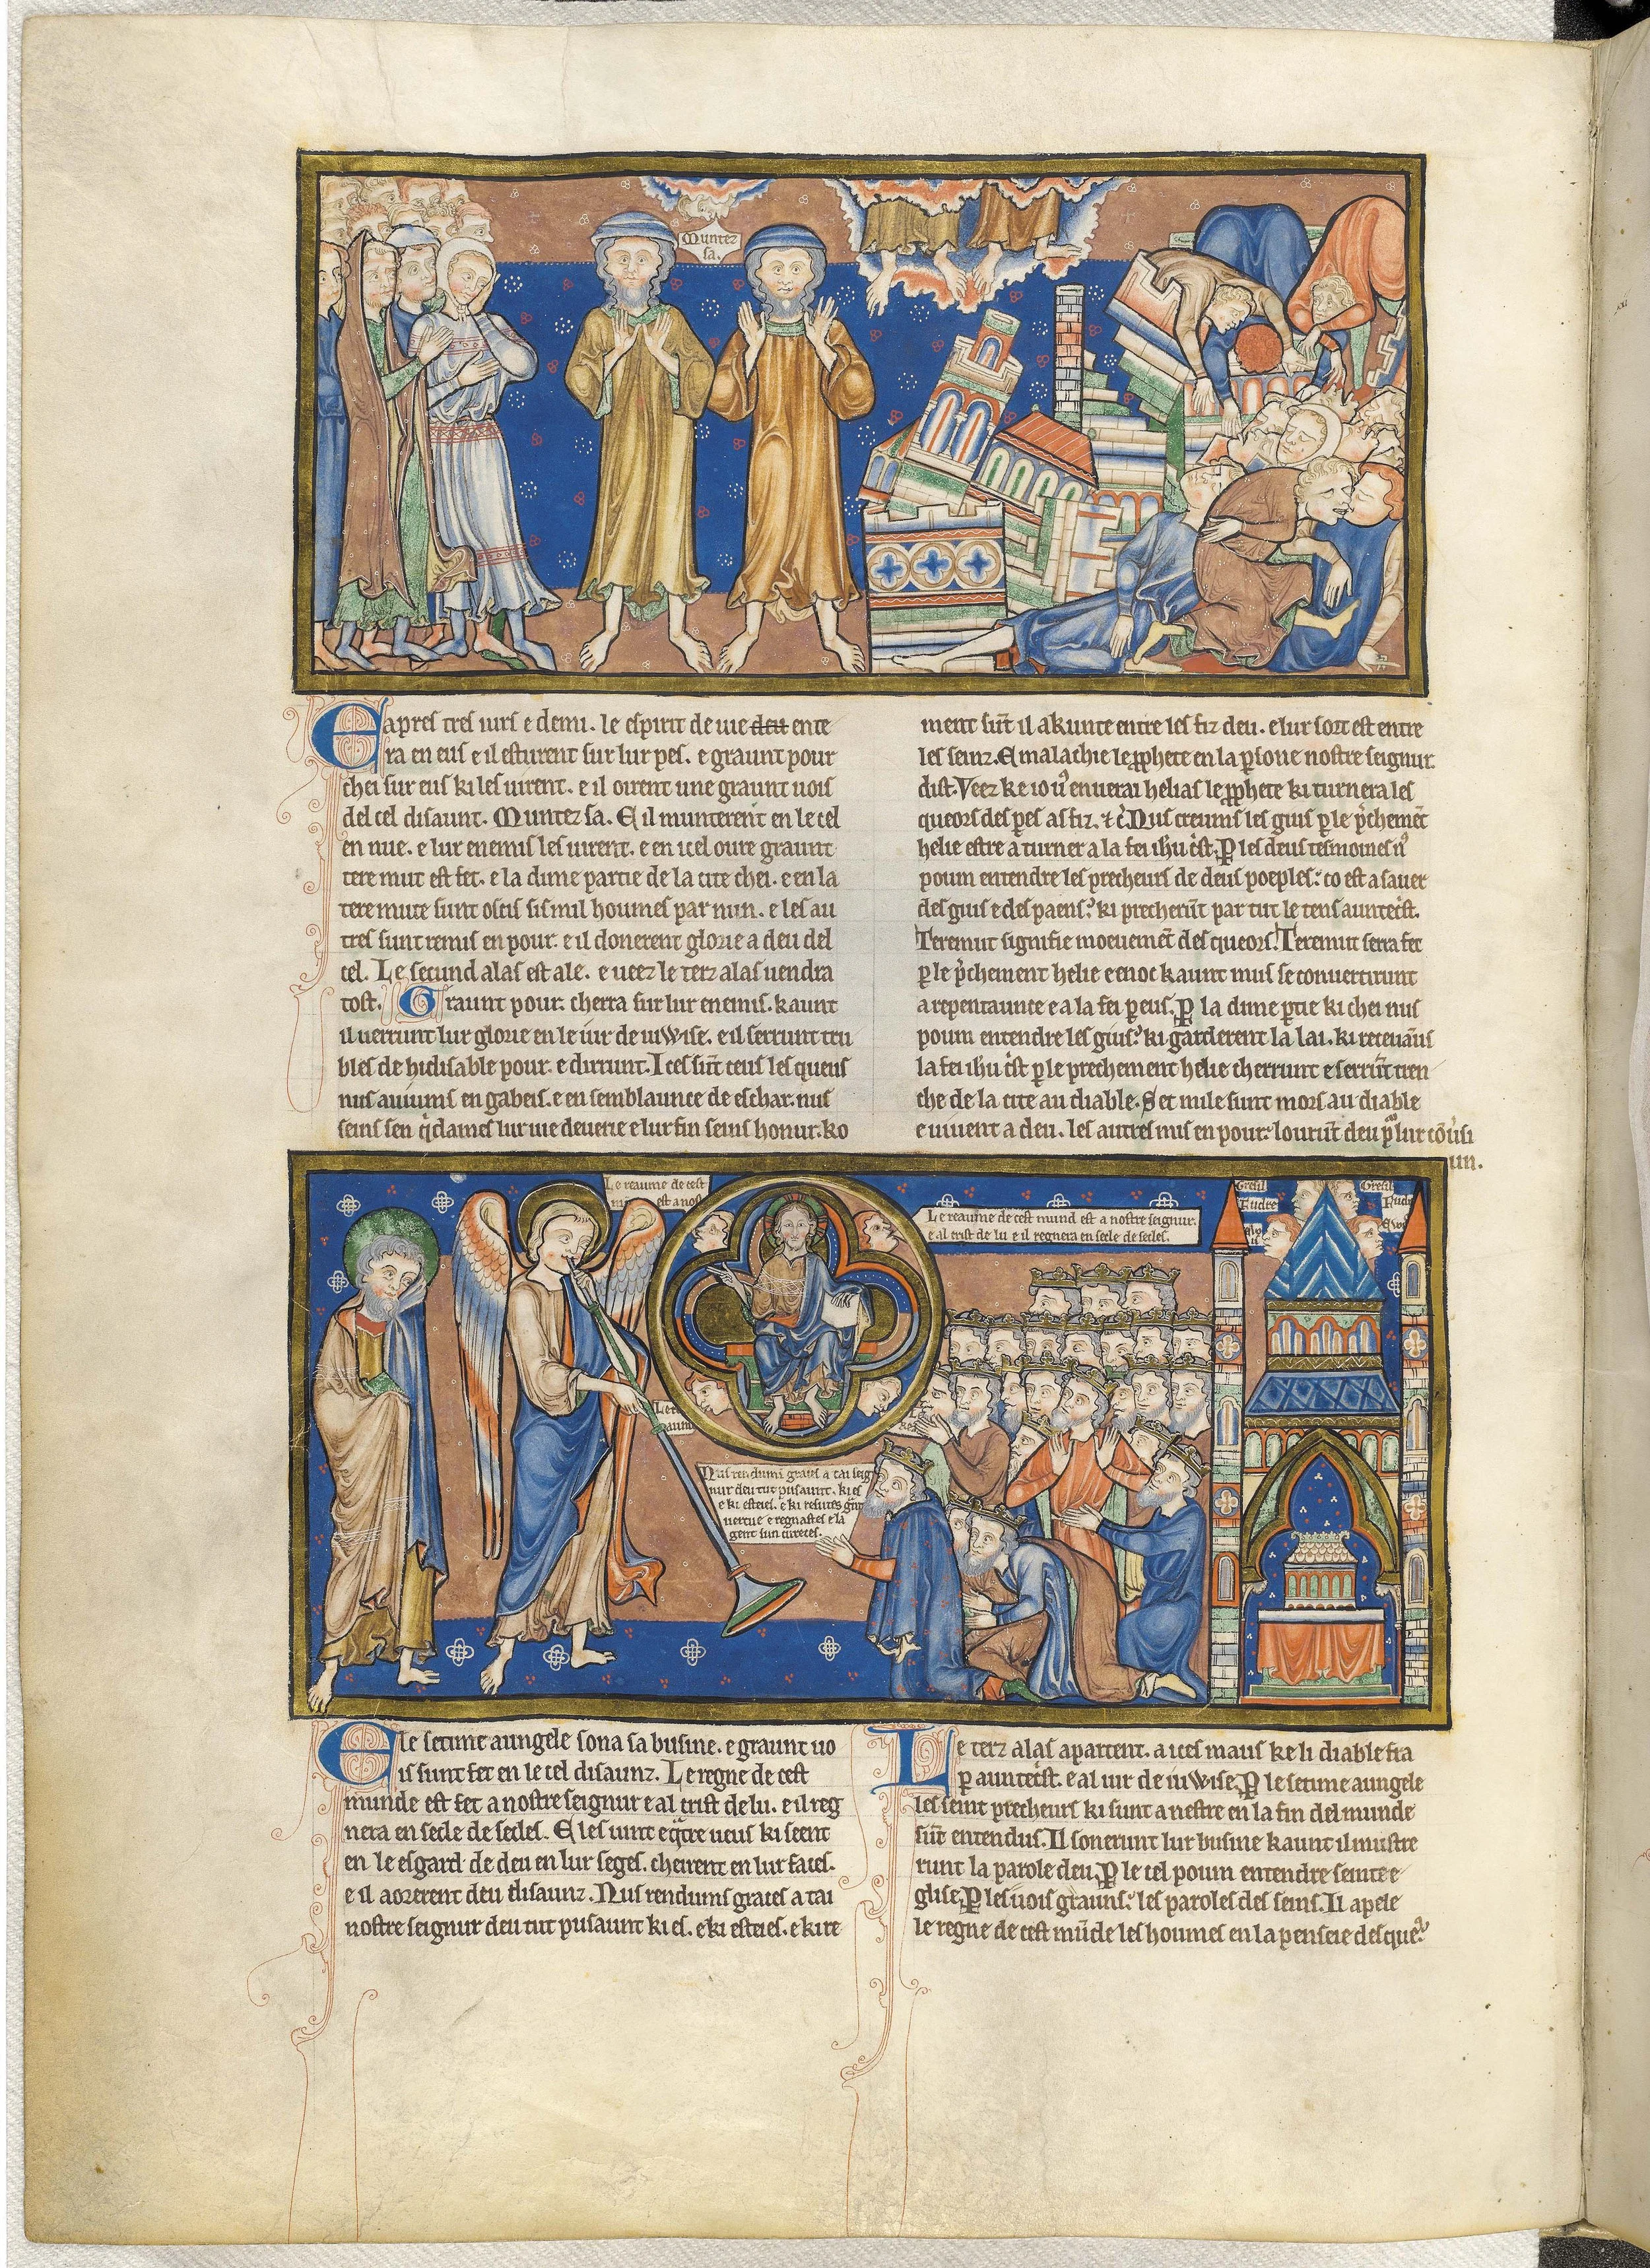 Munter
sa.
E apres tres iurs e demi. le espirit de uie deu ente
ra en eus e il esturent sur lur pes. e graunt pour
chei sur eus ki les uirent. e il oirent une graunt uois
del cel disaunt. Munter sa. E il munterent en le cel
en nue. e lur enemis les uirent. e en icel oure graunt
teremut est fet. e la dime partie de la cite chei. e en la
teremute sunt oscis sis mil houmes par nun. e les au
tres sunt remis en pour. e il donerent glorie a deu del
cel. Le secund alas est ale. e ueez le terz alas uendra
tost. Graunt pour cherra sur lur enemis. kaunt
il uerrunt lur glorie en le iur de iuwise. e il serrunt tru
bles de hidisable pour. e dirrunt. Ices sūt ceus les queus
nus auiums en gabeis. e en semblaunce de eschar. nus
seins sen q̇dames lur uie deuerie e lur fin seins honur. ko
ment sūt il akunte entre les fiz deu. e lur sort est entre
les seinz. E malachie le pphete en la psone nostre seignur
dist. Veez ke io uꝰ enuerai helias le pphete ki turnera les
queors des pes as fiz. ⁊ c̄. Nus creums les gius ꝑ le p̄chemēt
helie estre a turner a la fei ihu c̄st. Ꝑ les deus tesmoines nꝰ
poum entendre les precheurs de deus poeples: co est a sauer
des gius e des paens: ki precherūt par tut le tens auntec̄st.
Teremut signifie moeuemēt des queors. Teremut serra fet
ꝑ le p̄chement helie e enoc kaunt mus se conuertirunt
a repentaunce e a la fei ꝑ eus. Ꝑ la dime ꝑtie ki chei nus
poum entendre les gius: ki garderent la lai. ki receuāns
la fei ihu c̄st ꝑ le prechement helie cherrunt e serrūt tren
che de la cite au diable. Set mile sunt mors au diable
e uiuent a deu. les autres mis en pour: lourūt deu
Le reaume de cest
est a nost
Le reaume de cest mund est a nostre seignur.
e al crist de lu e il regnera en secle de secles.
Gresil
Fudre
Gresil
Fudre
Nus rendums graces a tai seig
nur deu tut pusaunt. ki es
e ki esteies. e ki resutes gn̄t
uertue e regnastes e la
gent sun cureces.
E le setime aungele sona sa busine. e graunt uo
is sunt fet en le cel disaunz. Le regne de cest
munde est fet a nostre seignur e al crist de lu. e il reg
nera en secle de secles. E les uint e qͣtre ueus ki seent
en le esgard de deu en lur seges. cheirent en lur faces.
e il aorerent deu disaunz. Nus rendums graces a tai
nostre seignur deu tut pusaunt ki es. e ki esteies. e ki re
Le terz alas apartent. a ices maus ke li diable fra
ꝑ auntec̄st. e al iur de iuwise. Ꝑ le setime aungele
les seint precheurs ki sunt a nestre en la fin del munde
sūt entendus. Il sonerunt lur busine kaunt il mustre
runt la parole deu. Ꝑ le cel poum entendre seinte e
glise. Ꝑ les uois grauns: les paroles des seins. Il apele
le regne de cest mūde les houmes en la penseie des